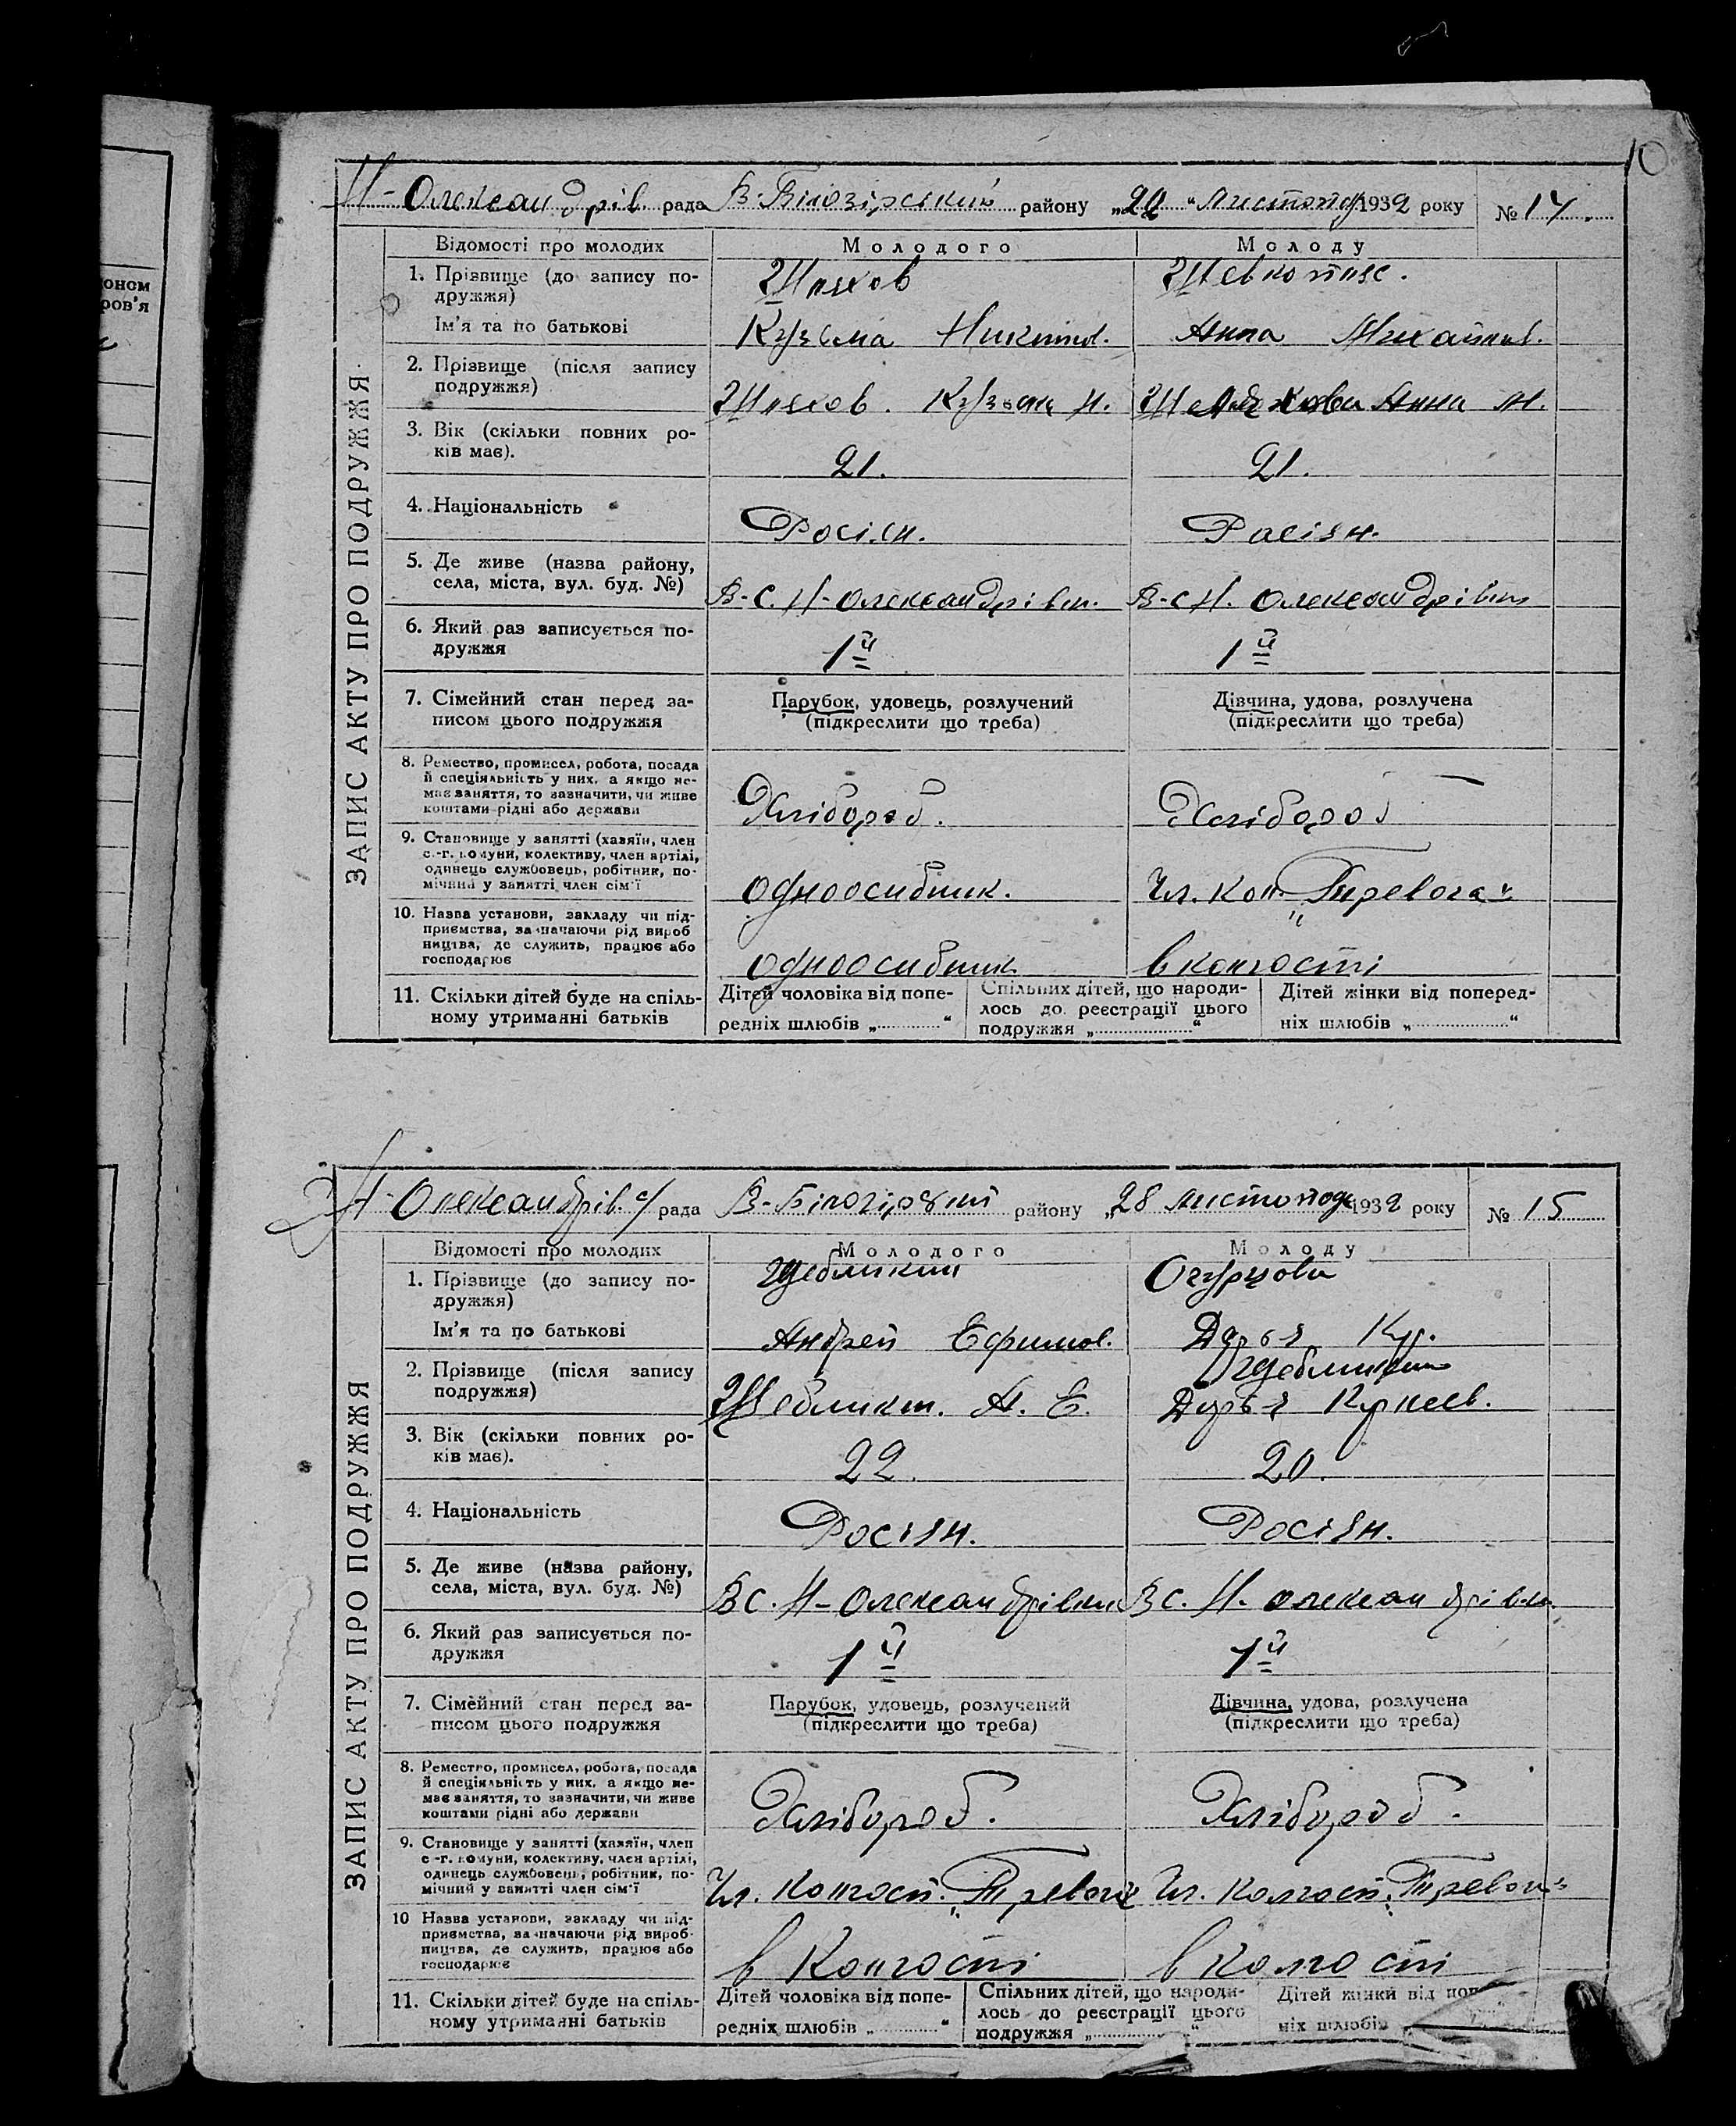 10
Н-Олександрів. рада В-Білозірський району „22“ Листопад 1932 року № 14
ЗАПИС АКТУ ПРО ПОДРУЖЖЯ
Відомості про молодих Молодого Молоду
1. Прізвище (до запису по-
дружжя)
Ім'я та по батькові Кузьма Никитов. Анна Михайлов.
2. Прізвище (після запису
подружжя) Кузьма Н. Анна М.
3. Вік (скільки повних ро-
ків має). 21. 21.
4. Національність Росіян. Росіян.
5. Де живе (назва району,
села, міста, вул. буд. №) В-С. Н-Олександрівки. В-С Н. Олександрівки
6. Який раз записується по-
дружжя 1й 1й
7. Сімейний стан перед за- Парубок, удовець, розлучений Дівчина, удова, розлучена
писом цього подружжя (підкреслити що треба) (підкреслити що треба)
8. Ремество, промисел, робота, посада
й спеціяльність у них, а якщо не-
має заняття, то зазначити, чи живе
коштами рідні або держави Хлібороб. Хлібороб
9. Становище у занятті (хазяїн, член
с.-г. комуни, колективу, член артілі,
одинець службовець, робітник, по-
мічний у занятті член сім'ї одноосибник. Чл. Кол. „Тревога“
10. Назва установи, закладу чи під-
приємства, зазначаючи рід вироб
ництва, де служить, працює або
господарює одноосибник в колгоспі
11. Скільки дітей буде на спіль- Дітей чоловіка від попе- Спільних дітей, що народи- Дітей жінки від поперед-
ному утриманні батьків редніх шлюбів „ “ лось до реєстрації цього ніх шлюбів „ “
подружжя „ “
Н-Олександрів. с/ рада В-Білозірський району „28 Листопада 1932 року № 15
ЗАПИС АКТУ ПРО ПОДРУЖЖЯ
Відомості про молодих Молодого Молоду
1. Прізвище (до запису по- Щебликин Огурцова
дружжя)
Ім'я та по батькові Андрей Ефимов. Дарья
2. Прізвище (після запису Щебликин
подружжя) Щебликин. А. Е. Дарья
3. Вік (скільки повних ро-
ків має). 22. 20.
4. Національність Росіян. Росіян.
5. Де живе (назва району,
села, міста, вул. буд. №) В С. Н-Олександрівки В С. Н. Олександрівки.
6. Який раз записується по-
дружжя 1й 1й
7. Сімейний стан перед за- Парубок, удовець, розлучений Дівчина, удова, розлучена
писом цього подружжя (підкреслити що треба) (підкреслити що треба)
8. Ремество, промисел, робота, посада
й спеціяльність у них, а якщо не-
має заняття, то зазначити, чи живе
коштами рідні або держави Хлібороб. Хлібороб.
9. Становище у занятті (хазяїн, член
с.-г. комуни, колективу, член артілі,
одинець службовець, робітник, по-
мічний у занятті член сім'ї Чл. Колгосп. „Тревога Чл. Колгосп. „Тревога“
10 Назва установи, закладу чи під-
приємства, зазначаючи рід вироб-
ництва, де служить, працює або
господарює в Колгоспі в Колгоспі
11. Скільки дітей буде на спіль- Дітей чоловіка від попе- Спільних дітей, що народи- Дітей жінки від поп
ному утриманні батьків редніх шлюбів „ “ лось до реєстрації цього ніх шлюбів
подружжя „ “